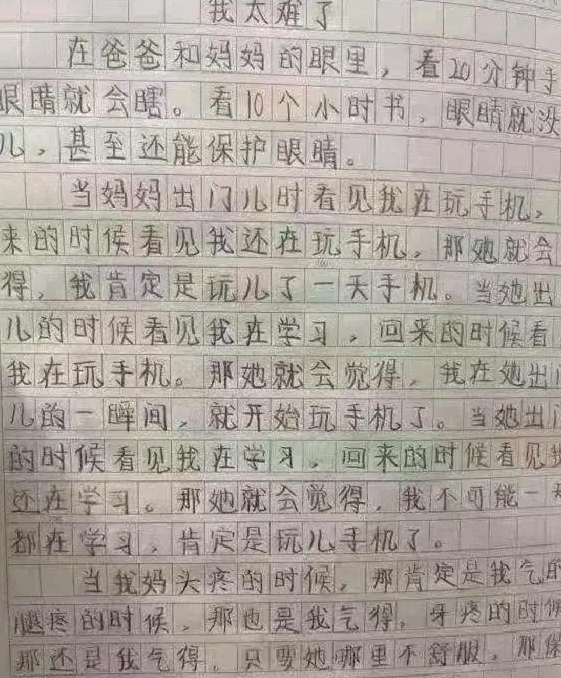 我太难了
在爸爸和妈妈的眼里，看20分钟手
眼睛就会瞎。看10个小时书，眼睛就没
儿，甚至还能保护眼睛。
当妈妈出门儿时看见我在玩手机，
来的时候看见我还在玩手机。那她就会
得，我肯定是玩儿了一天手机。当她出
儿的时候看见我在学习，回来的时候看
我在玩手机。那她就会觉得，我在她出门
儿的一瞬间，就开始玩手机了。当她出门
的时候看见我在学习，回来的时候看见我
还在学习。那她就会觉得，我不可能一天
都在学习，肯定是玩儿手机了。
当我妈头疼的时候，那肯定是我气的
腿疼的时候，那也是我气得，牙疼的时候
那还是我气得，只要她哪里不舒服，那保